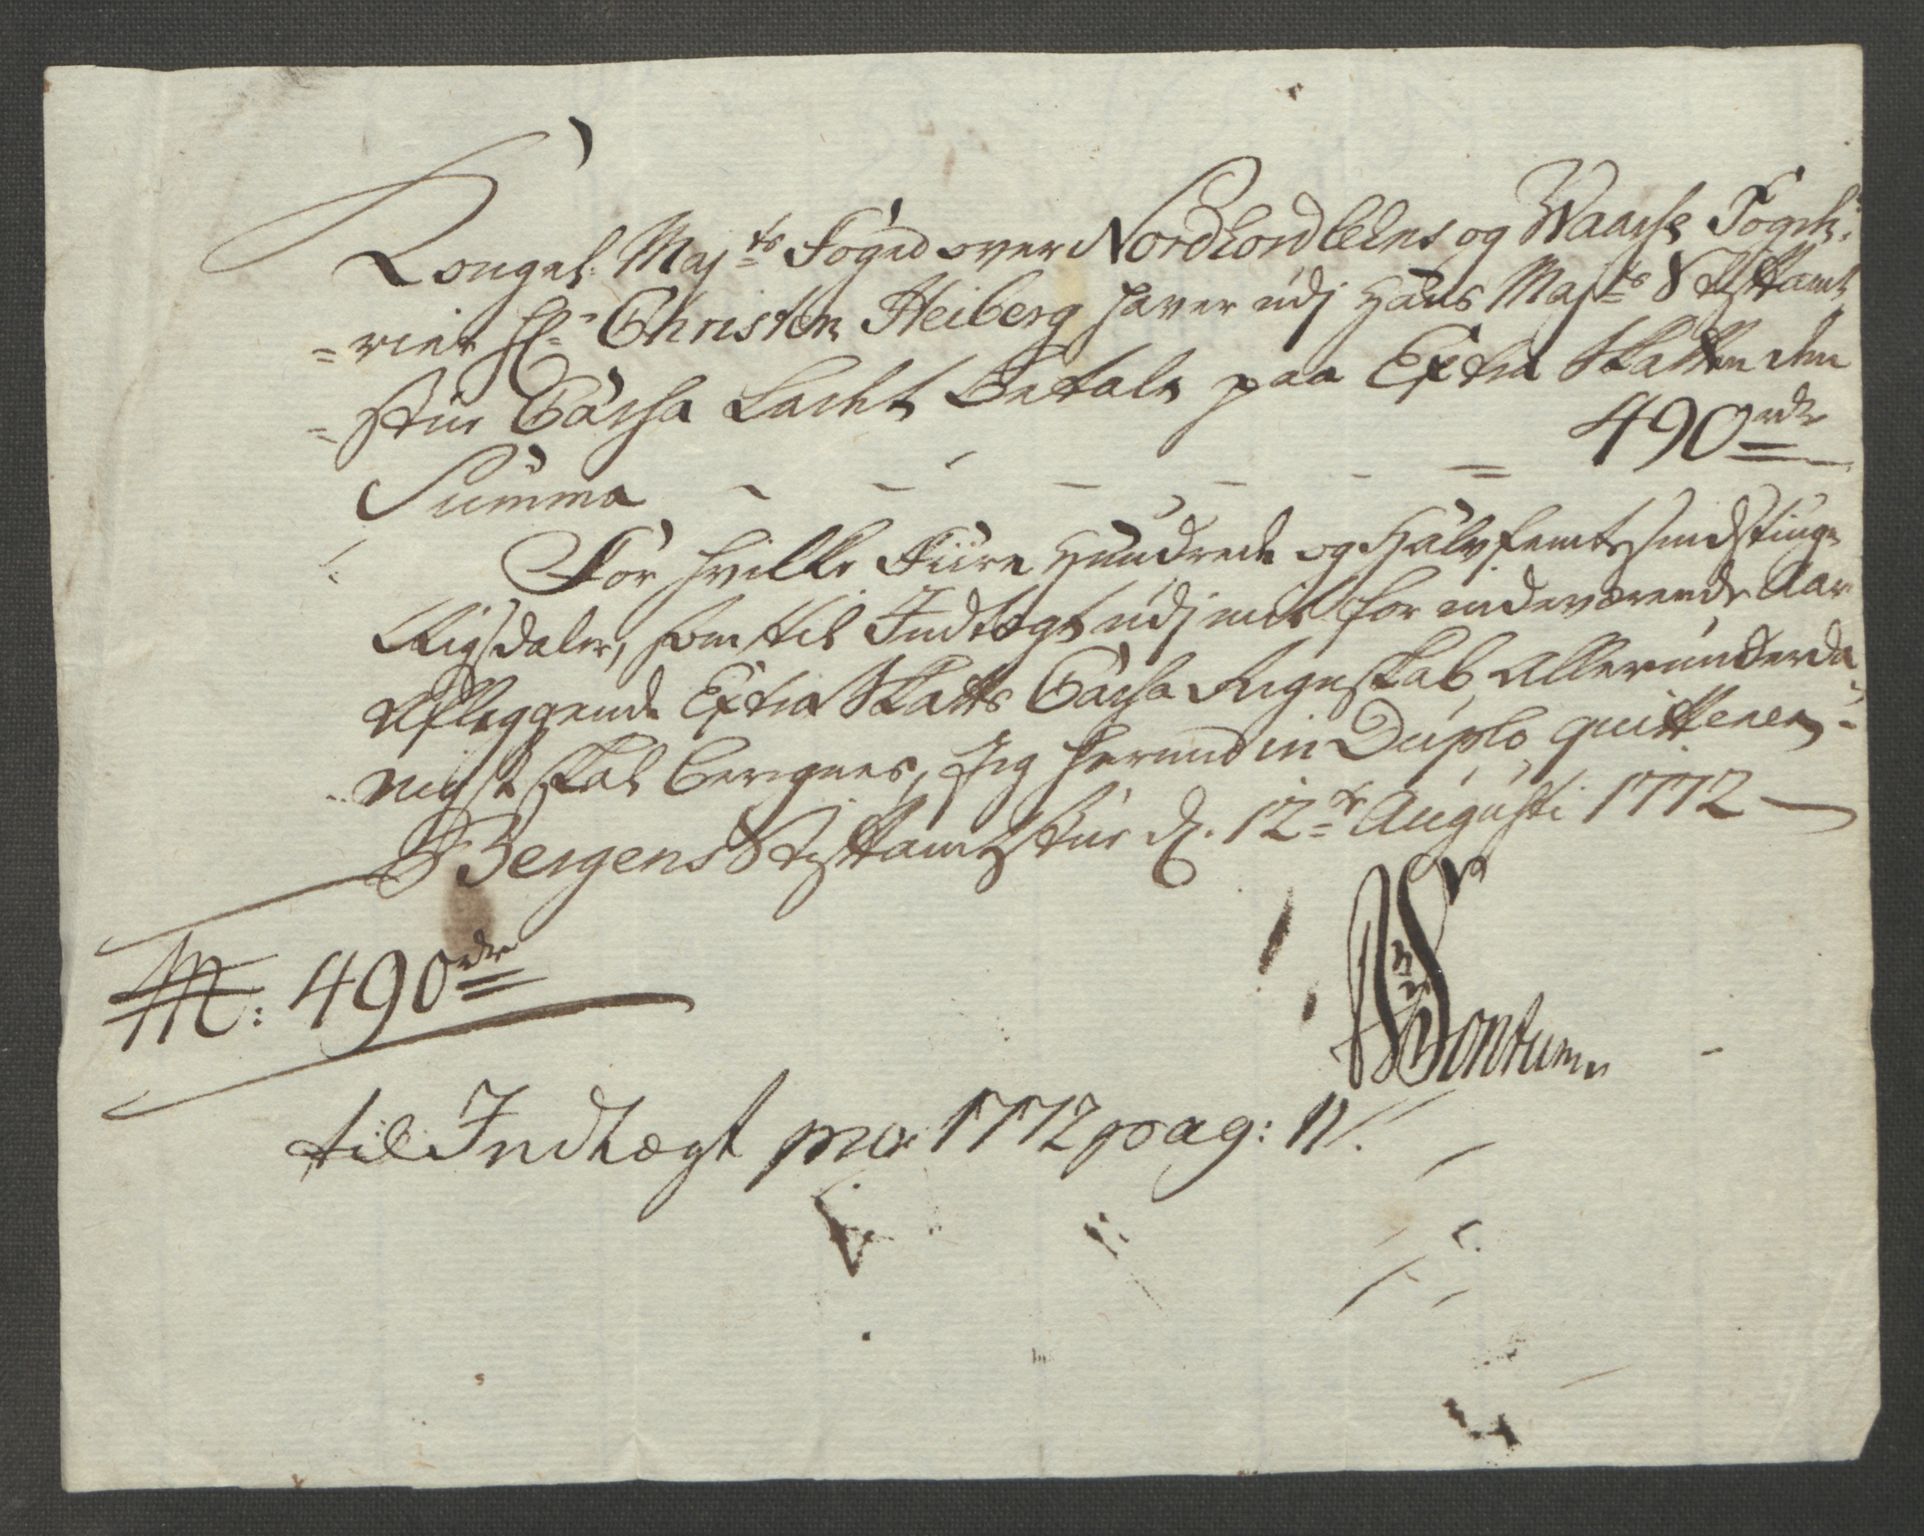 Kongel: Majts Foged over Nordhordlehns og Waasse Fogde-
=rier Hr Christen Heiberg haver udj Hans Majts Stiftamt
=stue Cassa Ladet Betale paa Extra Skatten den
Summa - - - - - - = 490rdr
For hvilke Fiire Hundrede og Halvfemtesindstiuge
Rigsdaler, som til Indtægt udj mit for indeværende Aar
Aflæggende Extra Skatts Cassa Regnskab Allerunderda-
nigst skal beregnes, Jeg herved in Duplo quitterer,
Bergens Stiftamtstue d. 12te Augusti 1772
490rdr
Sontumn
til Indtægt pro 1772 pag: 11